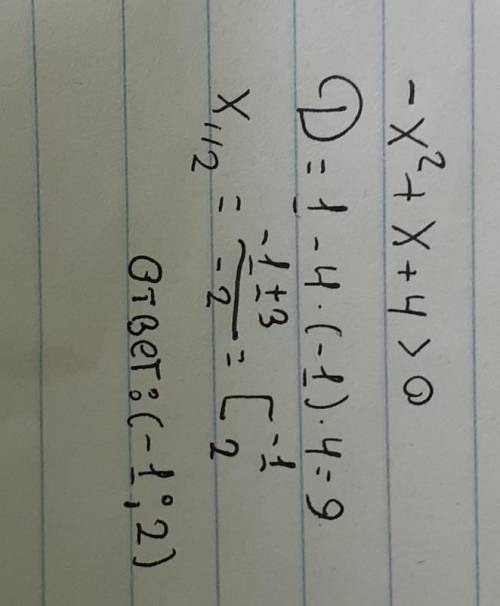 -x² + x + 4 > 0
D = 1 - 4 · (-1) · 4 = 9
x₁,₂ = \frac{-1 ± 3}{-2} = [ -1 2
Ответ: (-1; 2)